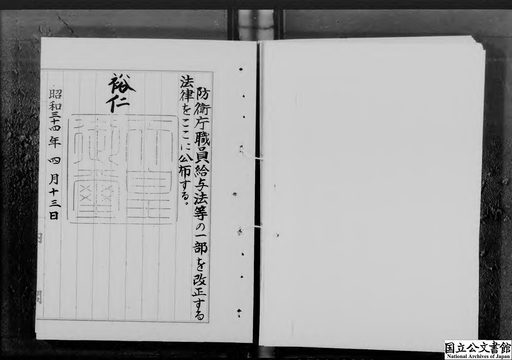 防衛庁職員給与法等の一部を改正する
法律をここに公布する。
裕仁
天皇
御璽
昭和三十四年四月十三日
国立公文書館
National Archives of Japan